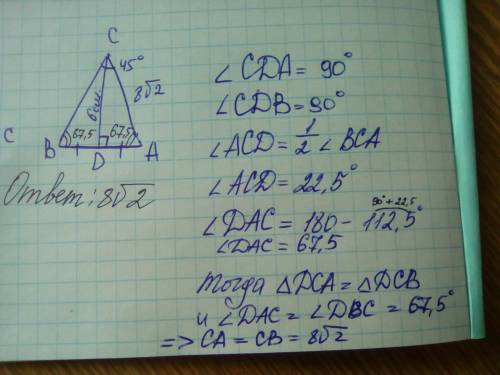 C
45°
8√2
6 см
67,5
67,5
C
B
D
A
Ответ: 8√2
∠CDA = 90°
∠CDB = 90°
∠ACD = 1/2 ∠BCA
∠ACD = 22,5°
90° + 22,5
∠DAC = 180 - 112,5°
∠DAC = 67,5
тогда △DCA = △DCB
и ∠DAC = ∠DBC = 67,5°
=> CA = CB = 8√2